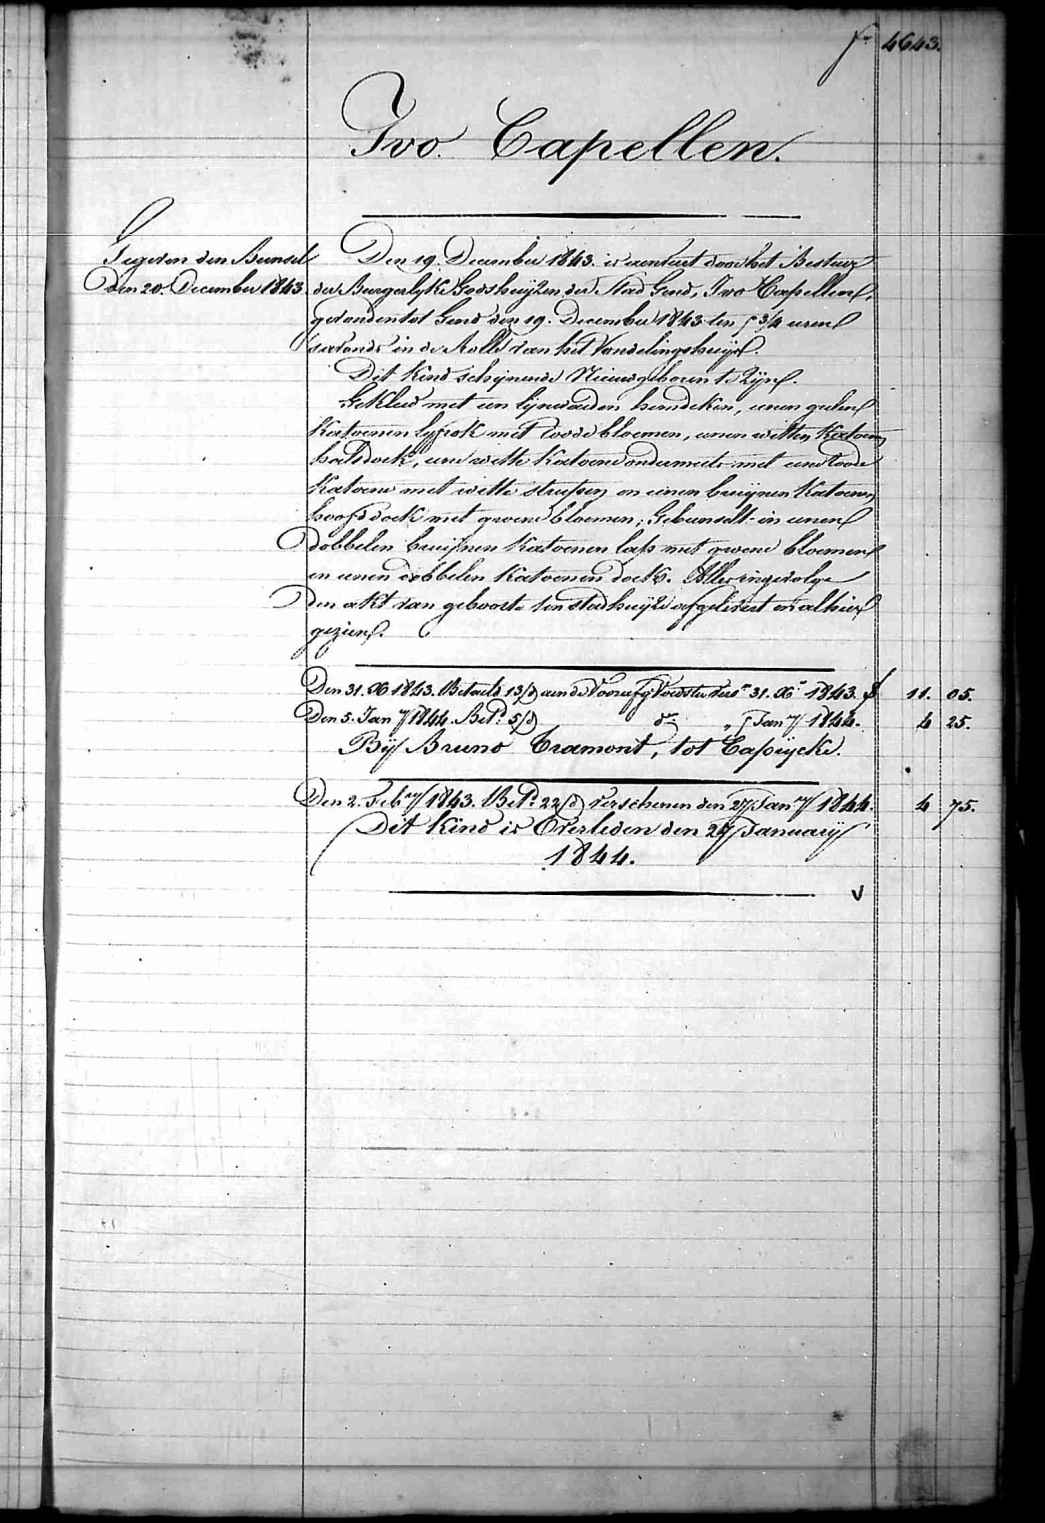 fo 4643.
Ivo Capellen.
Gegeven den Bunsel
Den 20. December 1843.
Den 19. December 1843. is door het Bestuer
der Burgerlyke Godshuyzen der Stad Gend, Ivo Capellen,
gevonden tot Gend den 19. December 1843 ten 5 3/4 uren
savonds in de Rolle van het Vondelingshuys.
Dit kind schynende Nieuwgeboren te Zyn.
Gekleed met een lynwaeden hemdeken, eenen geelen
Katoenen lyfrok met roode bloemen, eenen witten Katoenen
halsdoek, eene witte Katoene ondermuts met eene roode
Katoene met witte streepen en eenen bruynen Katoenen
hoofddoek met groene bloemen; Gebunselt in eenen
dobbelen bruynen Katoenen lap met groene bloemen
en eenen dobbelen Katoenen doek. Alles ingevolge
den akt van geboorte ten stadhuyze afgelevert en alhier
gezien.
Den 31. Xb 1843. Betaeld 13/d aen de Voorster 31. Xb 1843. f 11. 05.
Den 5. Jany 1844. Betd 5/d do " 5 Jany 1844. 4 25.
By Bruno Tramont, tot Caprycke.
Den 2. Febry 1843. Betd 22/d verschenen den 27 Jany 1844. 4 75.
Dit kind is Overleden den 27 January
1844.